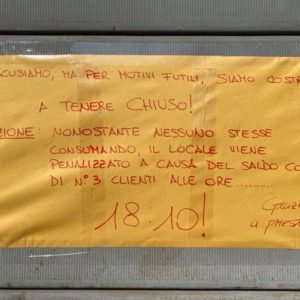 CUSIAMO, MA PER MOTIVI FUTILI, SIAMO COSTR
A TENERE CHIUSO!
ZIONE: NONOSTANTE NESSUNO STESSE
CONSUMANDO, IL LOCALE VIENE
PENALIZZATO A CAUSA DEL SALDO CO
DI N°3 CLIENTI ALLE ORE..........
18:10!
Grazi
a prest